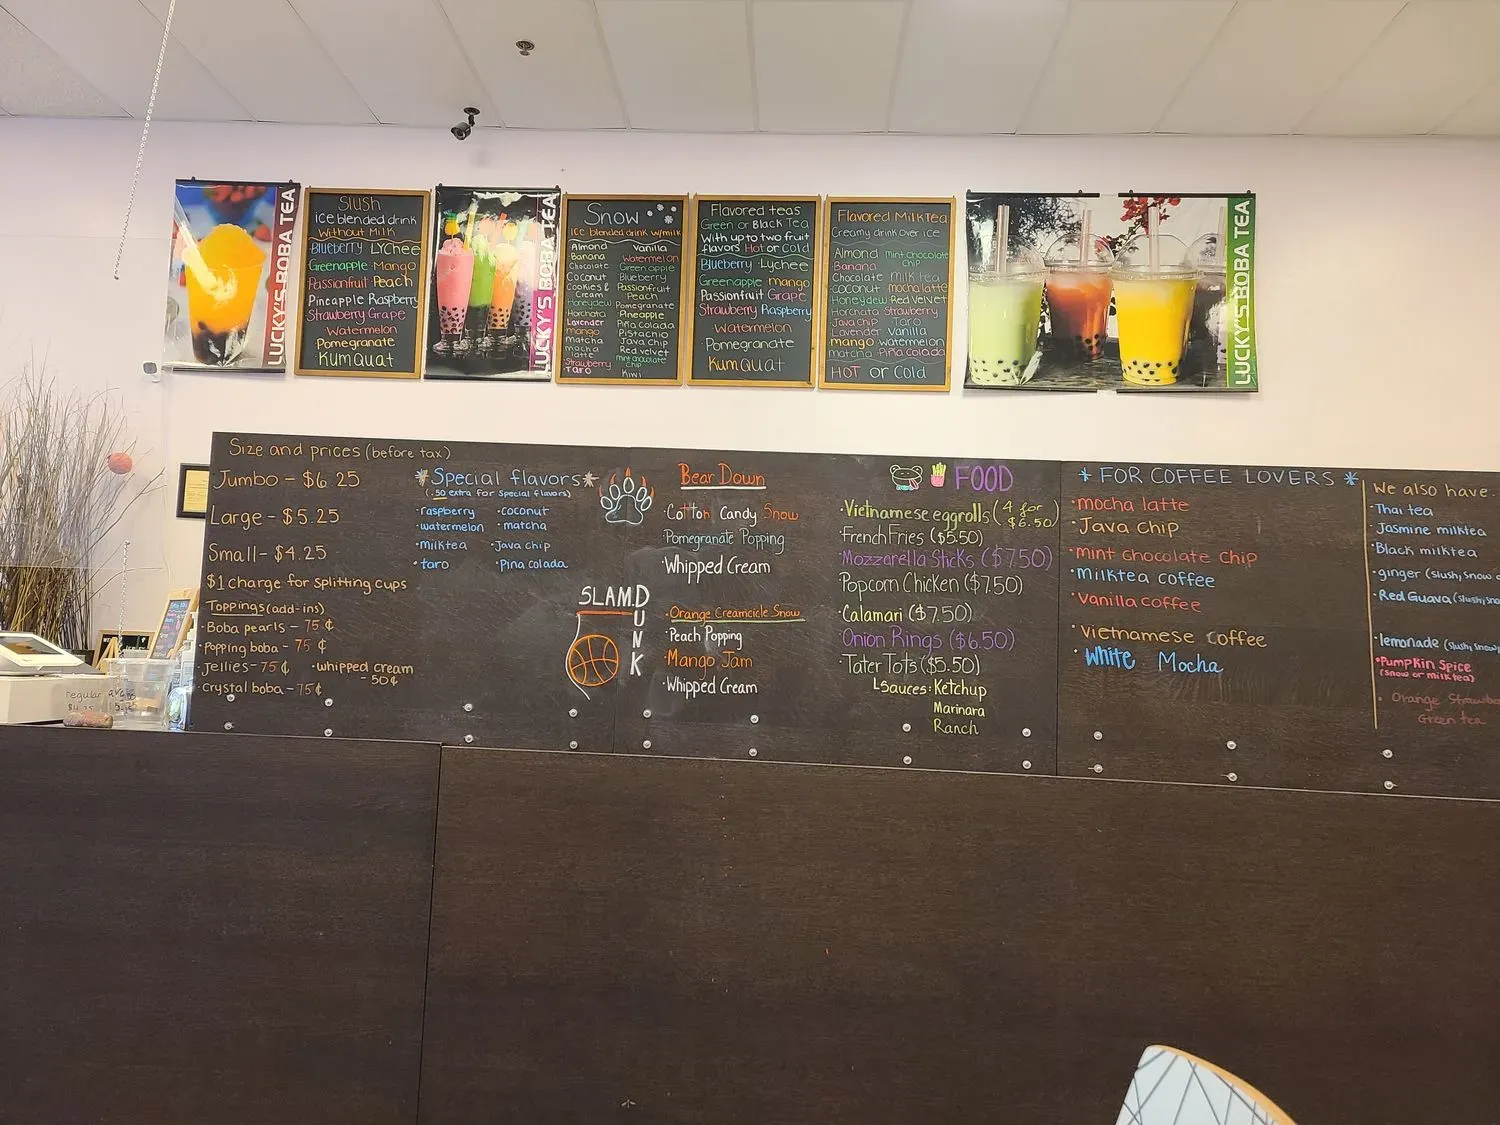 LUCKY'S BOBA TEA
Slush
ice blended drink
Without Milk
Blueberry LYChee
Greenapple Mango
Passionfruit Peach
Pineapple Raspberry
Strawberry Grape
Watermelon
Pomegranate
Kumquat
LUCKY'S BOBA TEA
Snow
ICE blended drink w/milk
Almond
Banana
Chocolate
Coconut
Cookies &
Cream
Honeydew
Horchata
Lavender
mango
Matcha
Matcha
latte
Strawberry
Taro
Vanilla
Watermelon
Green apple
Blueberry
Passionfruit
Peach
Pomegranate
Pineapple
Piña colada
Pistachio
Java chip
Red velvet
mint chocolate
chip
Kiwi
Flavored teas
Green or Black Tea
With up to two fruit
flavors Hot or Cold
Blueberry Lychee
Greenapple mango
Passionfruit Grape
Strawberry Raspberry
Watermelon
Pomegranate
KumQuat
Flavored MilkTea
Creamy drink over ice
Almond mint chocolate
chip
Banana
Chocolate milk tea
coconut mocha latte
Honeydew Red velvet
Horchata Strawberry
Java chip Taro
Lavender Vanilla
mango watermelon
matcha Piña colada
HOT or Cold
LUCKY'S BOBA TEA
Size and prices (before tax)
Jumbo - $6 25
Large - $5.25
Small - $4.25
$1 charge for splitting cups
Toppings (add-ins)
·Boba pearls - 75 ¢
·Popping boba - 75 ¢
·Jellies - 75 ¢ ·whipped cream
- 50¢
·Crystal boba - 75¢
regular
*Special flavors*
(.50 extra for Special flavors)
·raspberry ·coconut
·watermelon ·matcha
·milktea ·Java chip
·taro ·Pina colada
SLAM
DUNK
Bear Down
·Cotton Candy Snow
·Pomegranate Popping
·Whipped Cream
·Orange Creamcicle Snow
·Peach Popping
·Mango Jam
·Whipped Cream
FOOD
·Vietnamese eggrolls (4 for
$6.50)
·French Fries ($5.50)
·Mozzarella Sticks ($7.50)
·Popcorn Chicken ($7.50)
·Calamari ($7.50)
·Onion Rings ($6.50)
·Tater Tots ($5.50)
Sauces: Ketchup
Marinara
Ranch
* FOR COFFEE LOVERS *
·mocha latte
·Java chip
·mint chocolate chip
·milktea coffee
·Vanilla coffee
·Vietnamese coffee
·White Mocha
We also have.
·Thai tea
·Jasmine milktea
·Black milktea
·ginger (slush, snow
·Red Guava (slush, sno
·lemonade (slush, snow,
·Pumpkin Spice
(snow or milk tea)
· Orange Strawbe
Green tea